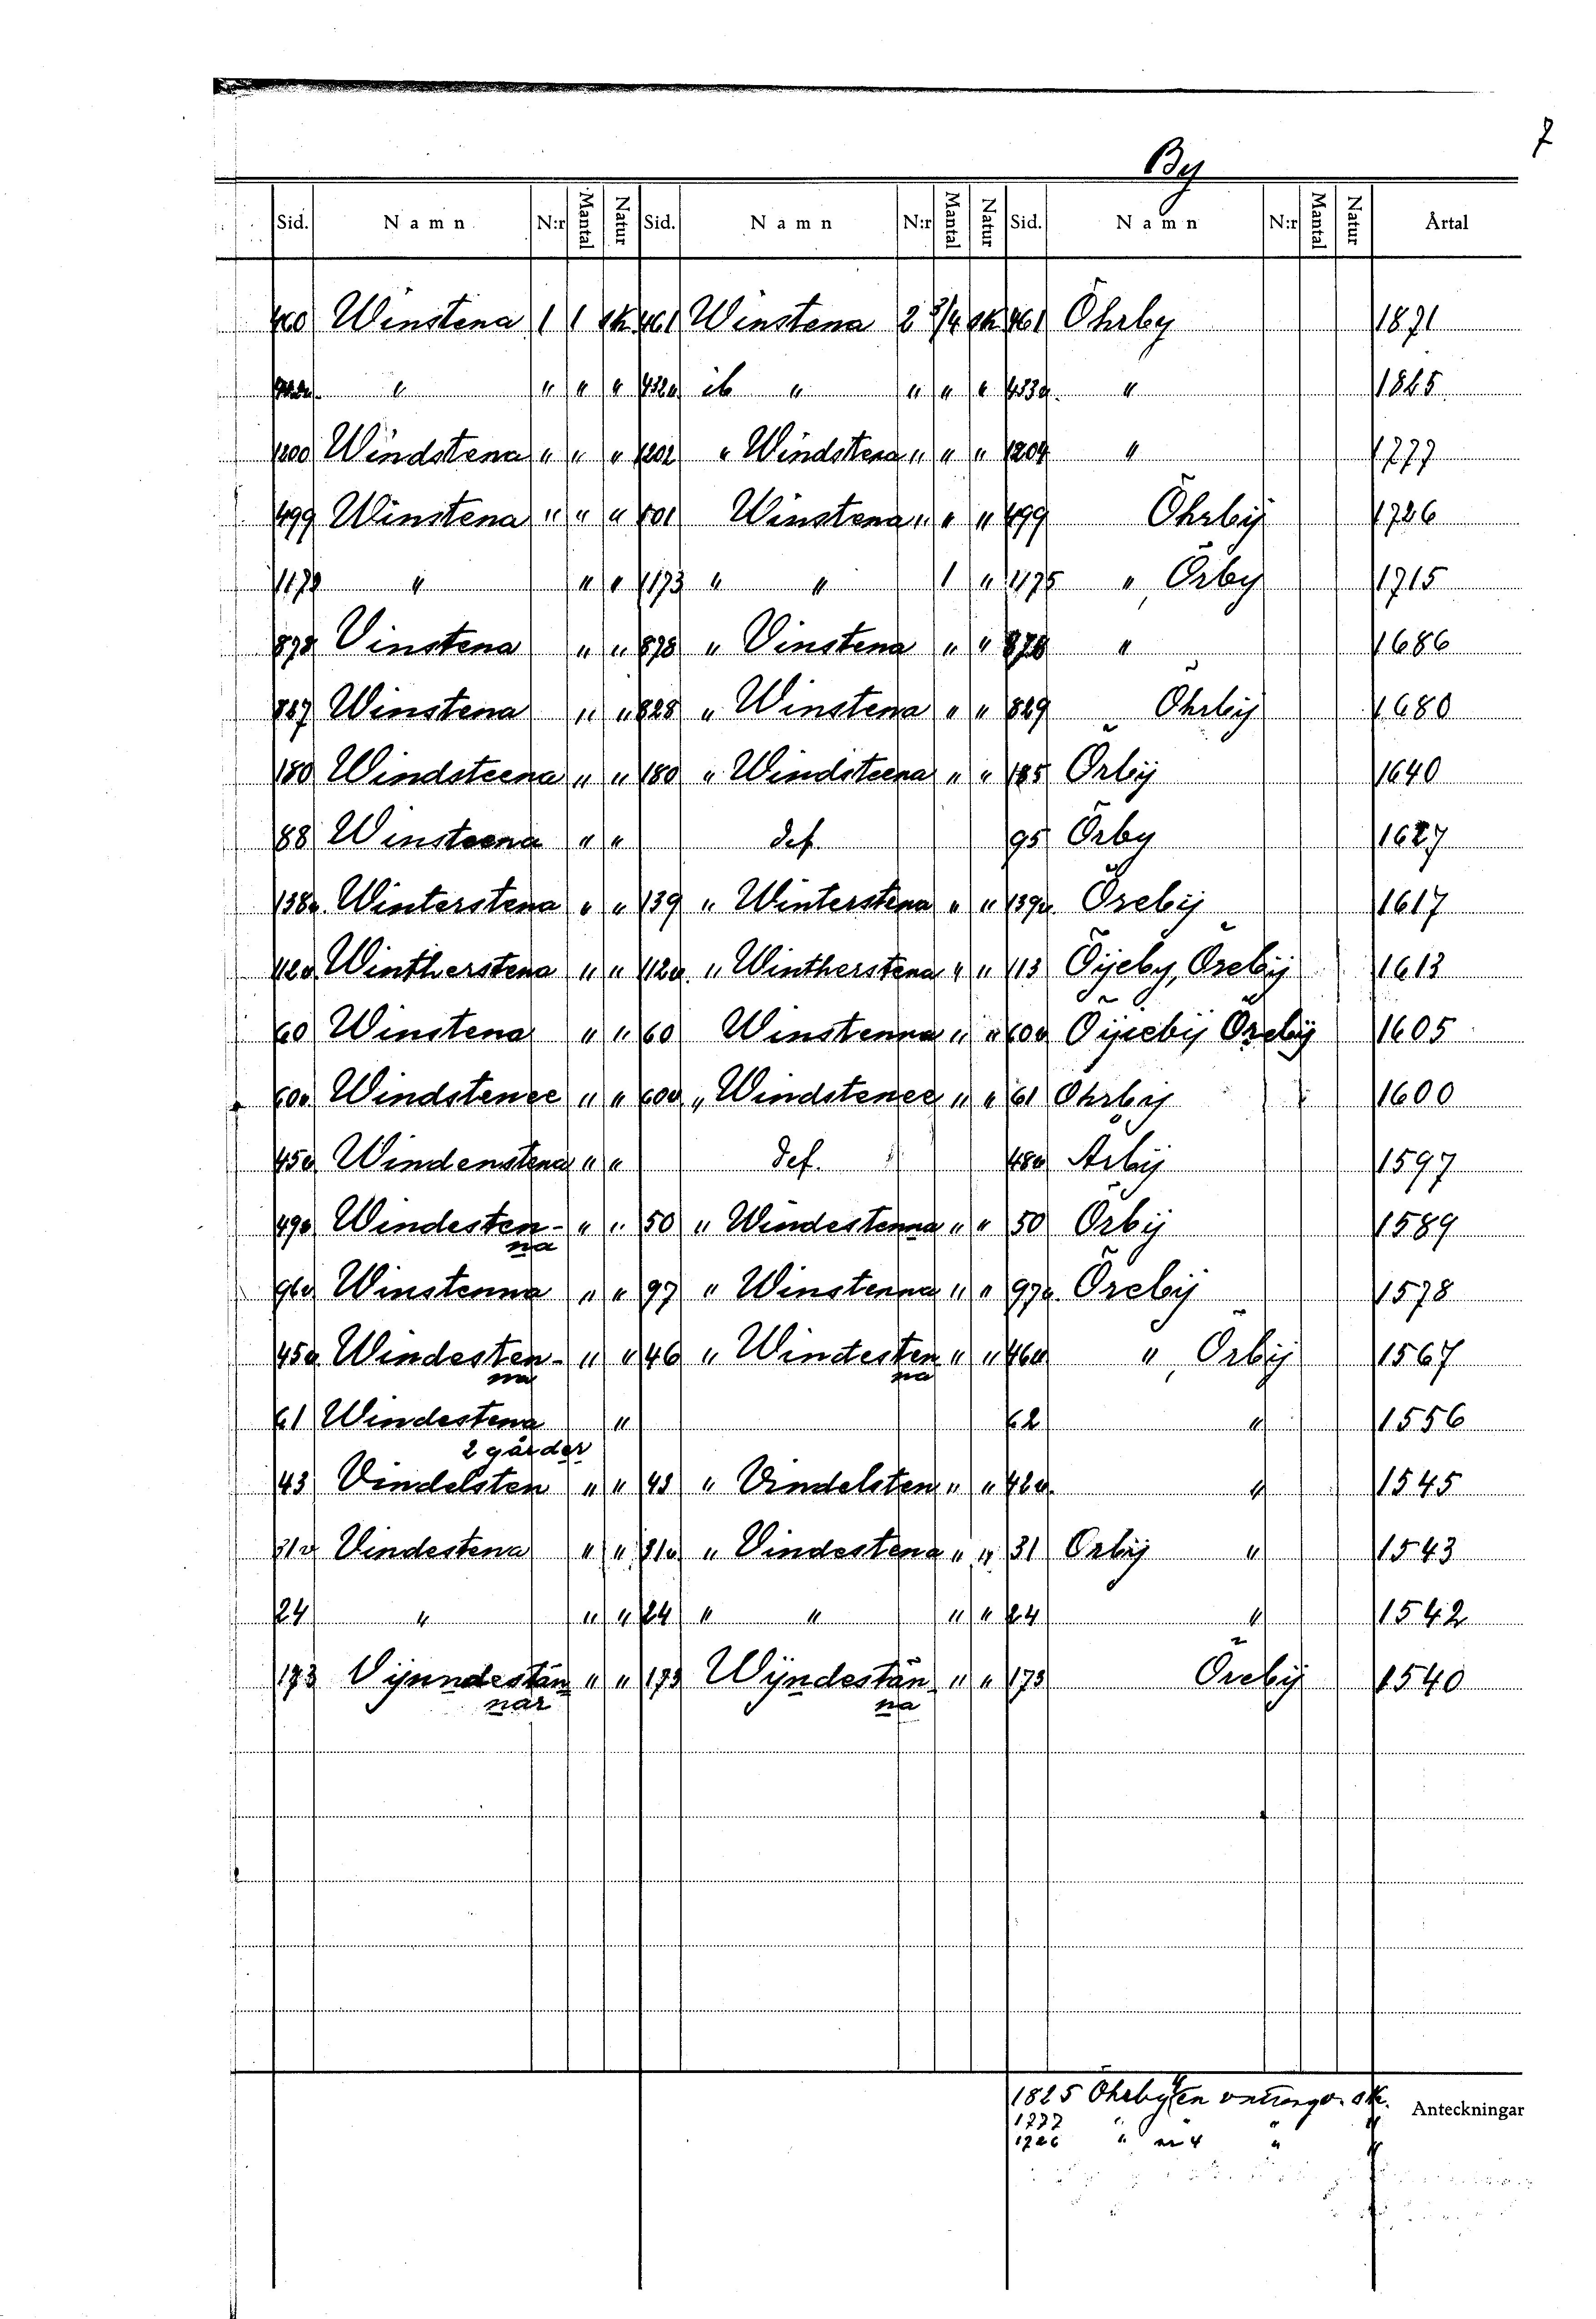 7
By
Sid. Namn N:r Mantal Natur Sid. Namn N:r Mantal Natur Sid. Namn N:r Mantal Natur Årtal
460 Winstena 1 1 sk 461 Winstena 2 3/4 sk 461 Öhrby 1871
" " " " 432a ib " " " " 433a. " 1825
1200 Windstena " " " 1202 " Windstena " " " 1204 " 1777
499 Winstena " " " 501 Winstena " " " 499 Öhrbÿ 1726
1172 " " " 1173 " " 1 " 1175 ", Örby 1715
878 Vinstena " " 878 " Vinstena " " 878 " 1686
827 Winstena " " 828 " Winstena " " 829 Öhrbÿ 1680
180 Windsteena " " 180 " Windsteena " " 185 Örbÿ 1640
88 Winsteena " " def. 95 Örby 1627
138v. Winterstena " " 139 " Winterstena " " 139v. Örebÿ 1617
112v Wintherstena " " 112v. " Wintherstena " " 113 Öijeby, Örebÿ 1613
60 Winstena " " 60 Winstenna " " 60v Öijrebÿ Örebÿ 1605
60v Windstenee " " 60v " Windstenee " " 61 Öhrbÿ 1600
45v Windenstena " " def. 48v Ärbÿ 1597
49v Windesten- " " 50 " Windestenna " " 50 Örbÿ 1589
na
96v Winstenna " " 97 " Winstenna " " 97v. Örebÿ 1578
45v Windesten- " " 46 " Windesten " " 46v ", Örbÿ 1567
na na
61 Windestena " 62 " 1556
2 gårder
43 Vindelsten " " 43 " Vindelsten " " 42v. " 1545
31v Vindestena " " 31v " Vindestena " " 31 Orbÿ " 1543
24 " " " 24 " " " " 24 " 1542
173 Vijnndestän " " 173 Wÿndestän " " 173 Örebÿ 1540
när na
1825 Öhrby en utjengo. sk.
1777 " " "
1726 " nr 4 " "
Anteckningar